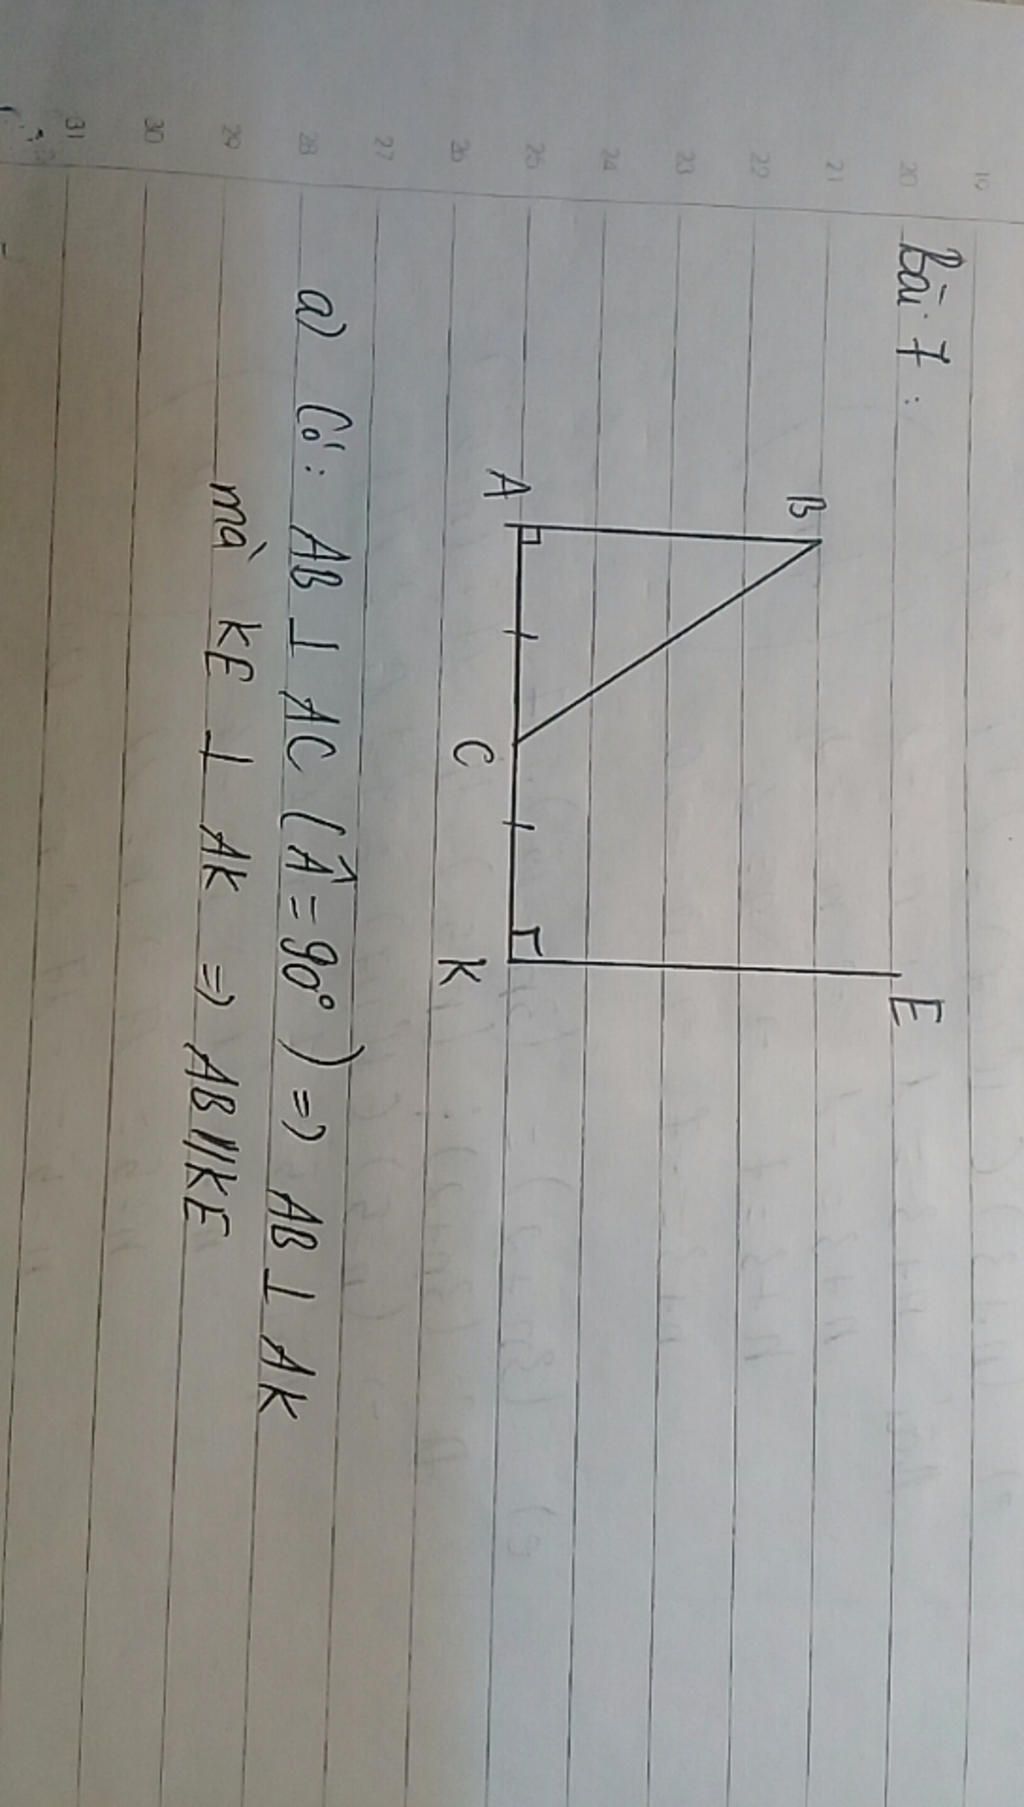 19
20
21
22
23
24
25
26
27
28
29
30
31
Bài 7:
B
E
A
C
K
a) Có: AB ⊥ AC (Â = 90°) => AB ⊥ AK
mà KE ⊥ AK => AB // KE